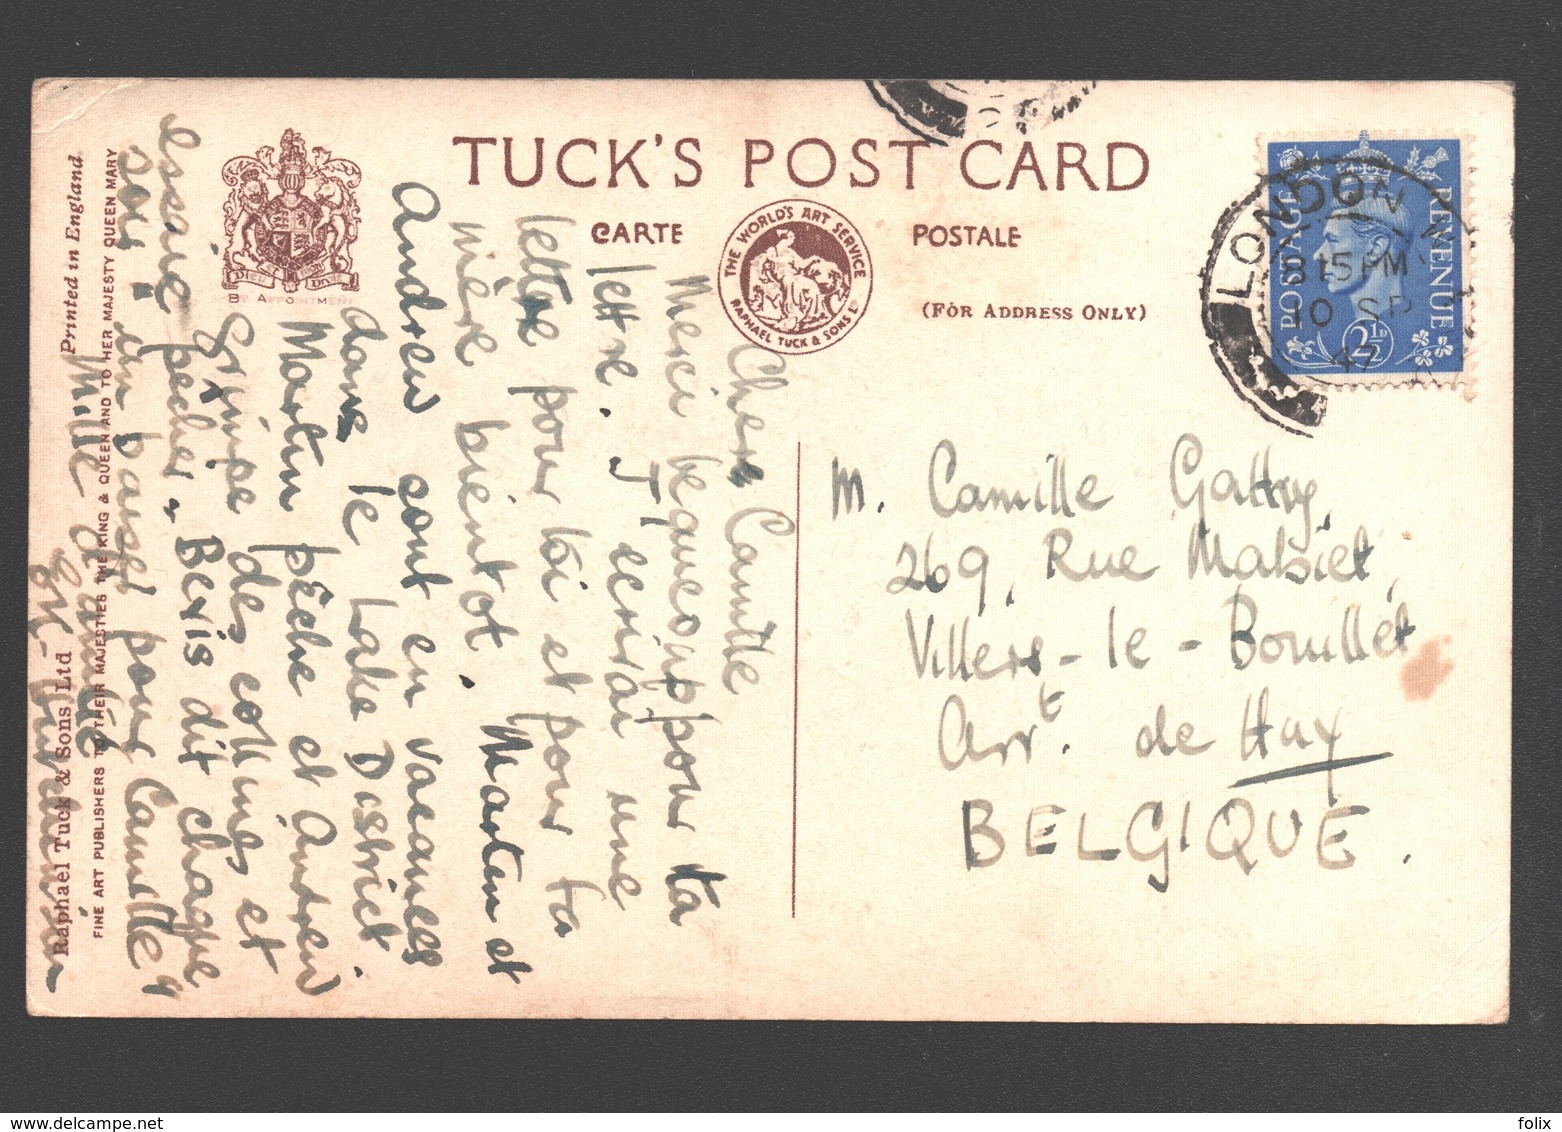 TUCK'S POST CARD
CARTE POSTALE
(FOR ADDRESS ONLY)
THE WORLD'S ART SERVICE
RAPHAEL TUCK & SONS LD
BY APPOINTMENT
Printed in England
Raphael Tuck & Sons Ltd
FINE ART PUBLISHERS TO THEIR MAJESTIES THE KING & QUEEN AND TO HER MAJESTY QUEEN MARY
POSTAGE REVENUE
2½D
LONDON
8 15 PM
10 SP
47
Chère Camille
Merci beaucoup pour ta
lettre. J'écrirai une
lettre pour toi et pour ta
mère bientot. Martin et
Andrew sont en vacances
dans le Lake District
Martin pêche et Andrew
grimpe des collines et
pêcher. Beris dit chaque
soir un pour Camille"
Mille
M. Camille Gattry,
269, Rue Malsiet,
Villers-le-Bouillet
Arrt. de Huy
BELGIQUE.
folix